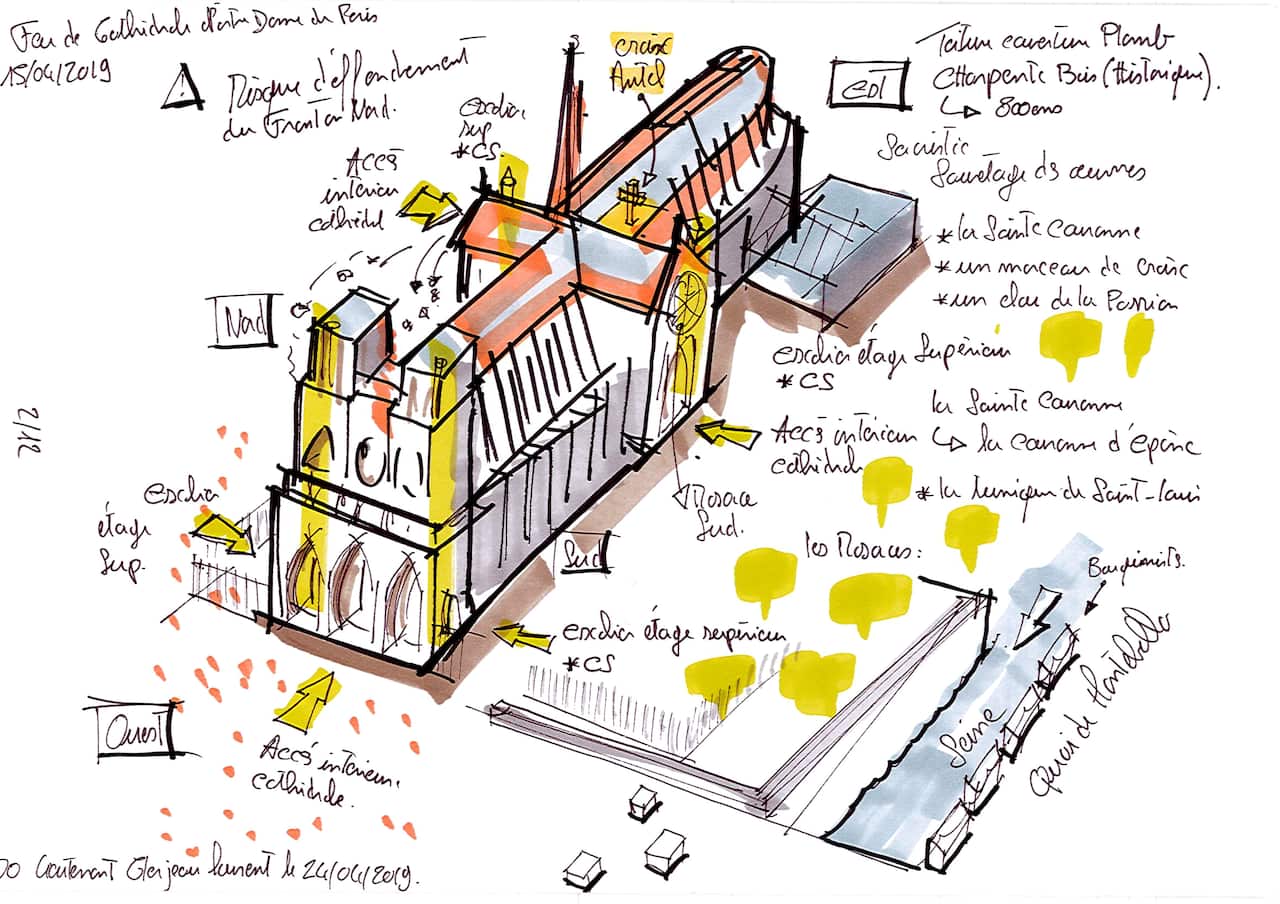 Feu de Cathédrale Notre Dame de Paris
15/04/2019
Risque d'effondrement
du Fronton Nord.
escalier
sup
*CS.
Accès
intérieur
cathédral
croix
Autel
est
Toiture couverture Plomb
Charpente Bois (Historique).
↳ 800 ans
Sacristie
Sauvetage des œuvres
* la Sainte Couronne
* un morceau de croix
* un clou de la Passion
Nord
escalier étage Supérieur
* CS
la Sainte Couronne
↳ la couronne d'épine
Accès intérieur
cathédrale
* la tunique de Saint-Louis
2/12
escalier
étage
Sup.
Rosace
Sud.
Sud
les Rosaces:
Bargements.
escalier étage supérieur
* CS
Seine
Quai de Montebello
Ouest
Accès intérieur
cathédrale.
Lieutenant laurent le 24/04/2019.